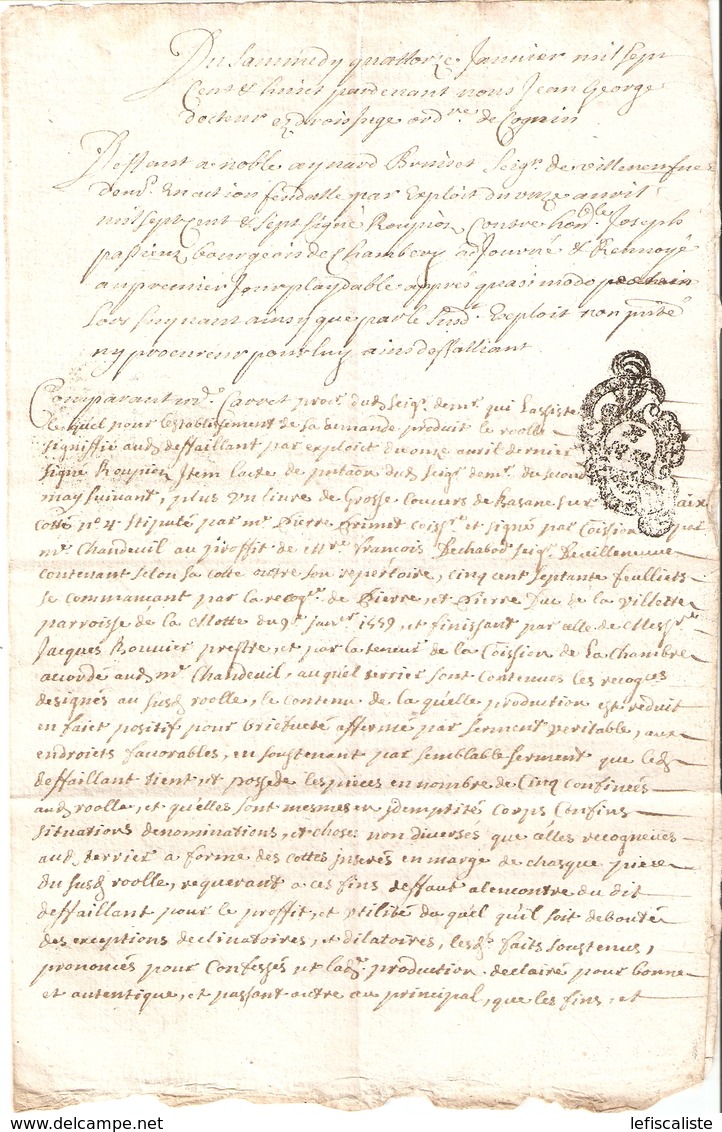 Du Sammedy quattorze Janvier mil sept
Cent & huict pardevant nous Jean George
docteur ez droits Juge ord.re de Cognin
Deffaut a noble aynard Brunset Seig.r de villeneufve
dem.r En action feodalle par Exploit du onze avril
mil sept cent & sept signé Roupiod Contre hon.ble Joseph
pasieux bourgeois de Chambery adjourné & Renvoyé
au premier Jour playdable appres quasimodo
Lors suyvant ainsy que par le Susd.t Exploit non
ny procureur pour luy ains deffalliant
Comparant m.e Carret proc.r dud Seig.r dem.r qui Lassiste
lequel pour lestablissement de sa demande produit le roolle
signiffié aud deffaillant par exploit du onze avril dernier
signé Roupiod Item lacte de dud Seig.r dem.r du second
may suivant, plus un livre de Grosse Couvers de Basane sur aix
cotté n.o 4 stipulé par m.e Pierre Primet et signé par Coision par
m.e Chandeuil au proffit de M.re francois Dechabod Seig.r De villeneuve
contenant selon sa cotte outre son repertoire, cinq cent septante feulliets
se commancant par la recog.ce de Pierre, et Pierre Duc de la Villotte
parroisse de la Motte du 9.e janv.r 1559, et finissant par celle de Mess.re
Jacques Bouvier prestre, et par la teneur de la Coission de La Chambre
acordé aud m.e Chandeuil, auquel terrier sont contenues les recog.ces
designés au susd roolle, le contenu de la quelle production est reduit
en faict positif pour briefueté affermé par serment veritable, aux
endroiets favorables, en soustenant par semblable serment que led
deffaillant tient, et possede les pieces en nombre de Cinq confinées
aud roolle, et quelles sont mesmes en jdemptité Corps Confins
situations denominations, et choses non diverses que celles recogneües
aud terrier a forme des cottes jnserés en marge de chasque piece
du susd roolle, requerant a ces fins deffaut alencontre du dit
deffaillant pour le proffit, et utilité du quel quil soit deboutté
des exceptions declinatoires, et dilatoires, lesd.s faits soustenus,
prononcés pour Confessés et lad.e production declairé pour bonne
et autentique, et passant outre au principal, que les fins, et
lefiscaliste